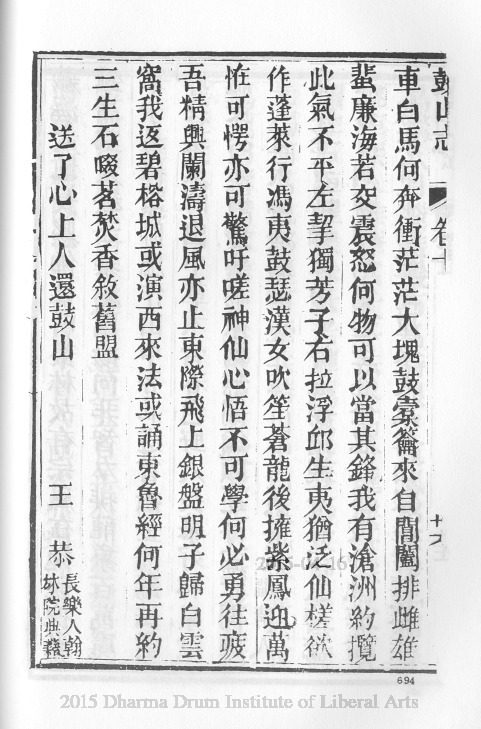 鼓山志 卷十
車白馬何奔衝茫茫大塊鼓橐籥來自閶闔排雌雄
蜚廉海若交震怒何物可以當其鋒我有滄洲約攬
此氣不平左挈獨芳子右拉浮邱生夷猶泛仙槎欲
作蓬萊行馮夷鼓瑟漢女吹笙蒼龍後擁紫鳳迎萬
怪可愕亦可驚吁嗟神仙心悟不可學何必勇往疲
吾精興闌濤退風亦止東際飛上銀盤明子歸白雲
窩我返碧榕城或演西來法或誦東魯經何年再約
三生石啜茗焚香敘舊盟
送了心上人還鼓山 王恭 長樂人翰林院典籍
694
2015 Dharma Drum Institute of Liberal Arts